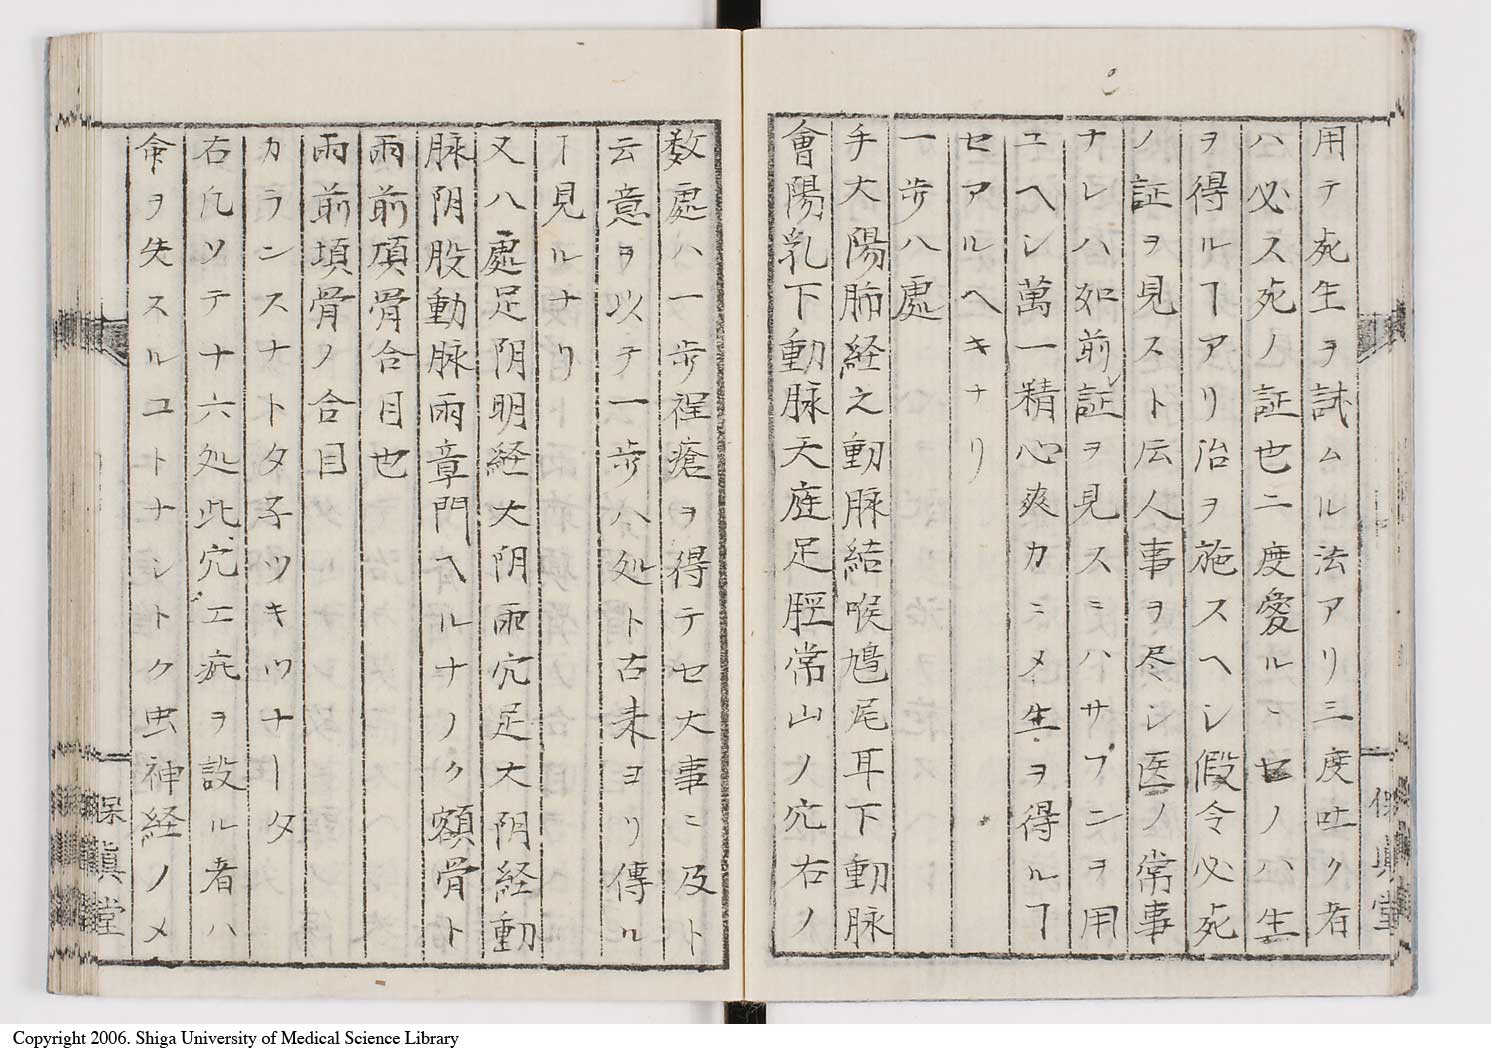 用テ死生ヲ試ムル法アリ三度吐ク者
ハ必ス死ノ証也二度愛ルヽセノハ生
ヲ得ルヿアリ治ヲ施スヘシ假令必死
ノ証ヲ見スト伝人事ヲ尽シ医ノ常事
ナレハ如前証ヲ見スミハトサフニヲ用
ユヘシ萬一精心爽カミメ生ヲ得ルヿ
セアルヘキナリ
一歩八處
手大陽肺経之動脉結喉鳩尾耳下動脉
會陽乳下動脉天庭足脛常山ノ穴右ノ
数處ハ一ヌ歩裎瘡ヲ得テセ大事ニ及ト
云意ヲ以テ一歩ハ処ト古来ヨリ傳ル
ヿ見ルナリ
又八處足阴明経大阴兩穴足大阴経動
脉阴股動脉兩章門ヘルナノク額骨ト
兩前項骨合目也
兩前項骨ノ合目
カランスナトタ子ツキツナータ
右凡ソテ十六処此穴エ疵ヲ設ル者ハ
命ヲ失スルコトナシトク虫神経ノメ
保真堂
保真堂
Copyright 2006. Shiga University of Medical Science Library